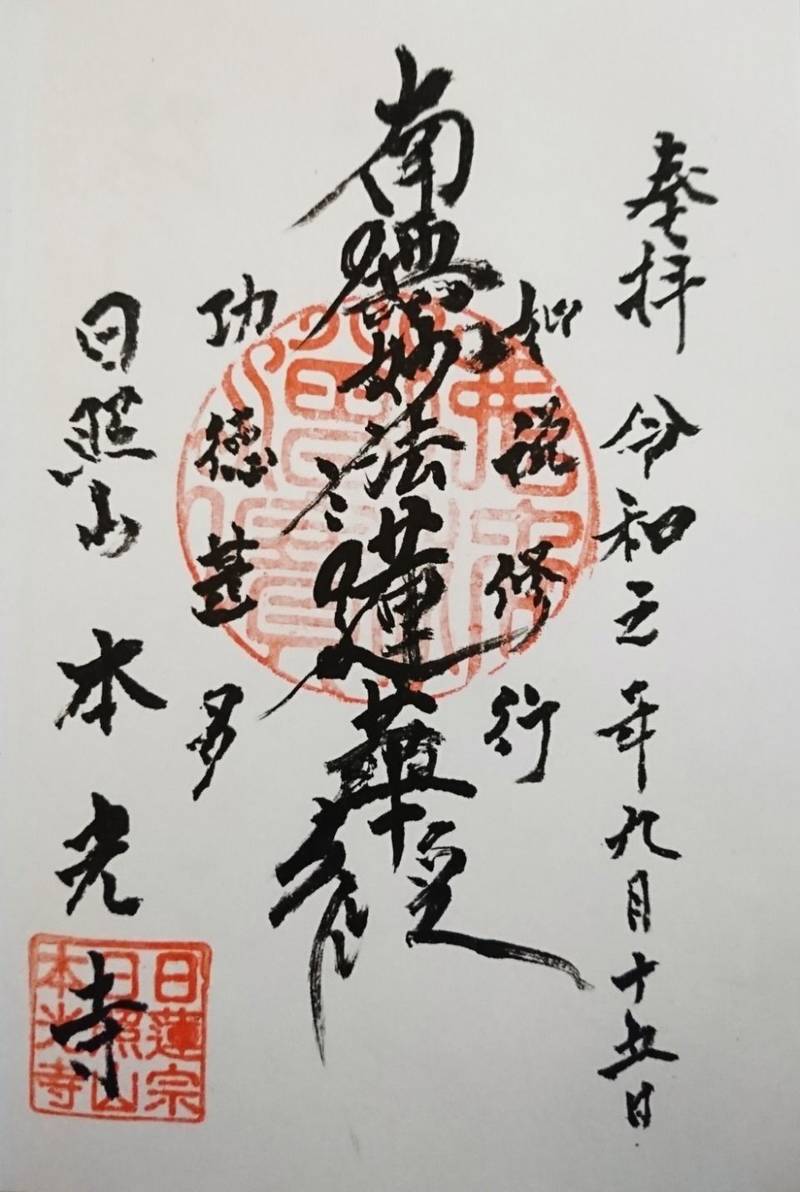 奉拝 令和五年九月十五日
如説修行
南無妙法蓮華経
功徳甚多
日照山 本光寺
佛法
僧寶
日蓮宗
日照山
本光寺